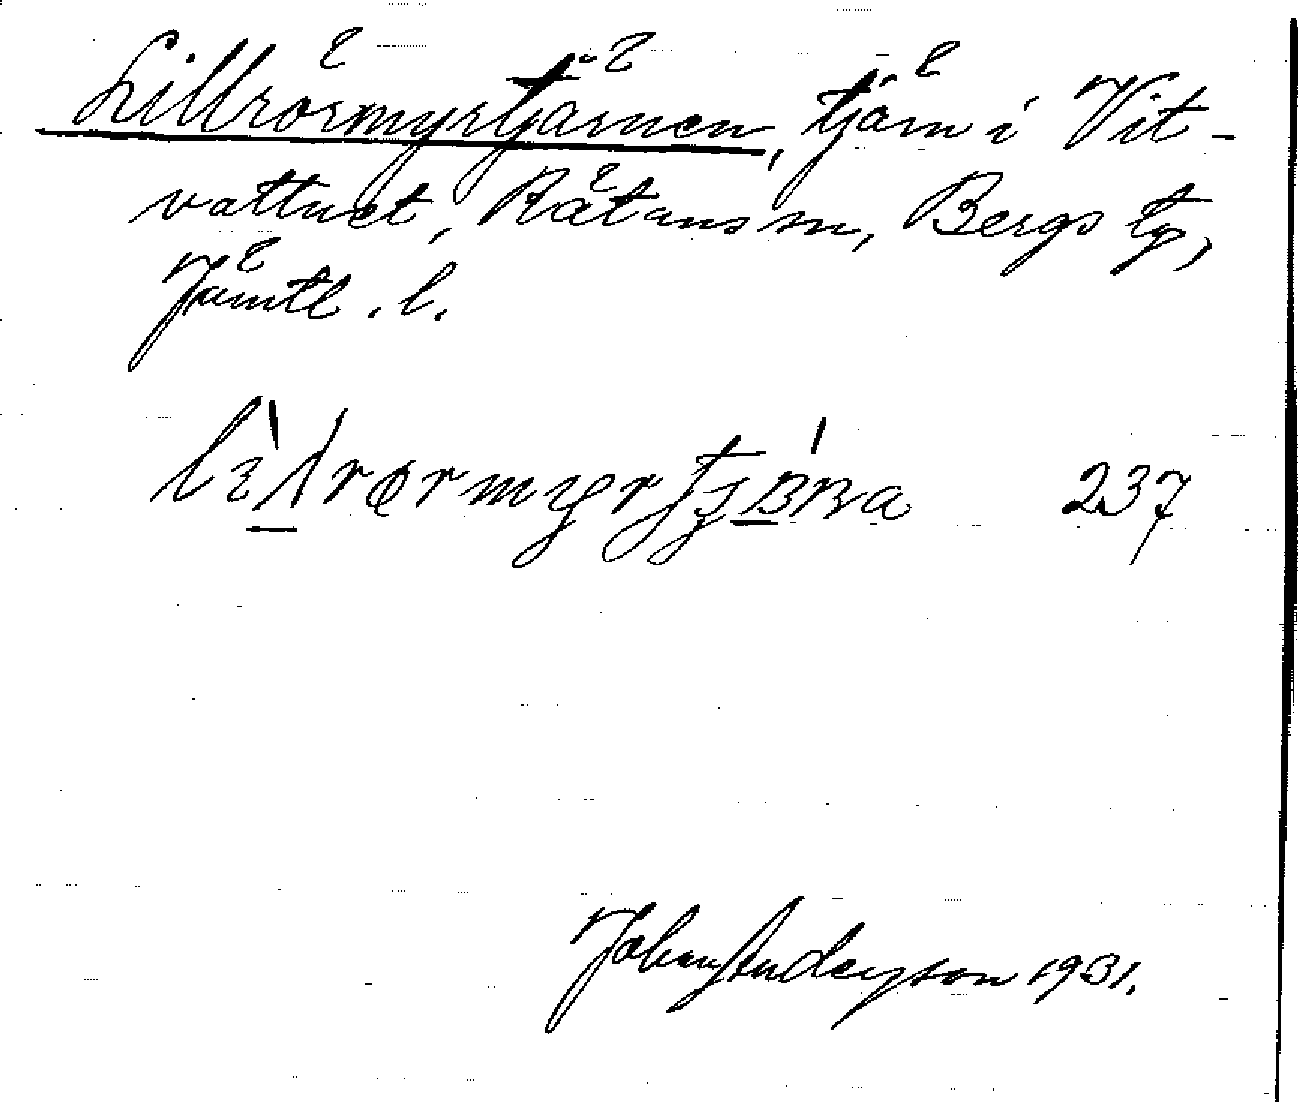 Lillrörmyrtjärnen, tjärn i Vit-
vattnet, Rätans sn, Bergs tg,
Jämtl. l.
237
Johan Anderson 1931.